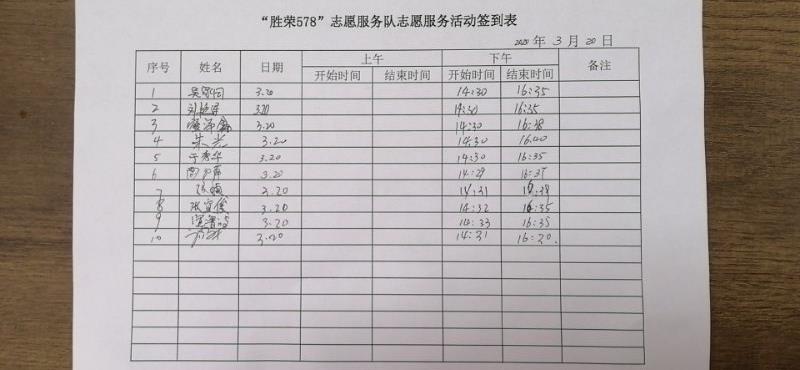 “胜荣578”志愿服务队志愿服务活动签到表
2020 年 3 月 20 日
序号 姓名 日期 上午 下午 备注
开始时间 结束时间 开始时间 结束时间
1 3.20 14:30 16:35
2 3.20 14:30 16:35
3 3.20 14:30 16:38
4 朱光 3.20 14:30 16:40
5 于秀华 3.20 14:30 16:35
6 3.20 14:29 16:37
7 3.20 14:31 16:38
8 张宜俊 3.20 14:32 16:35
9 3.20 14:33 16:35
10 3.20 14:31 16:20